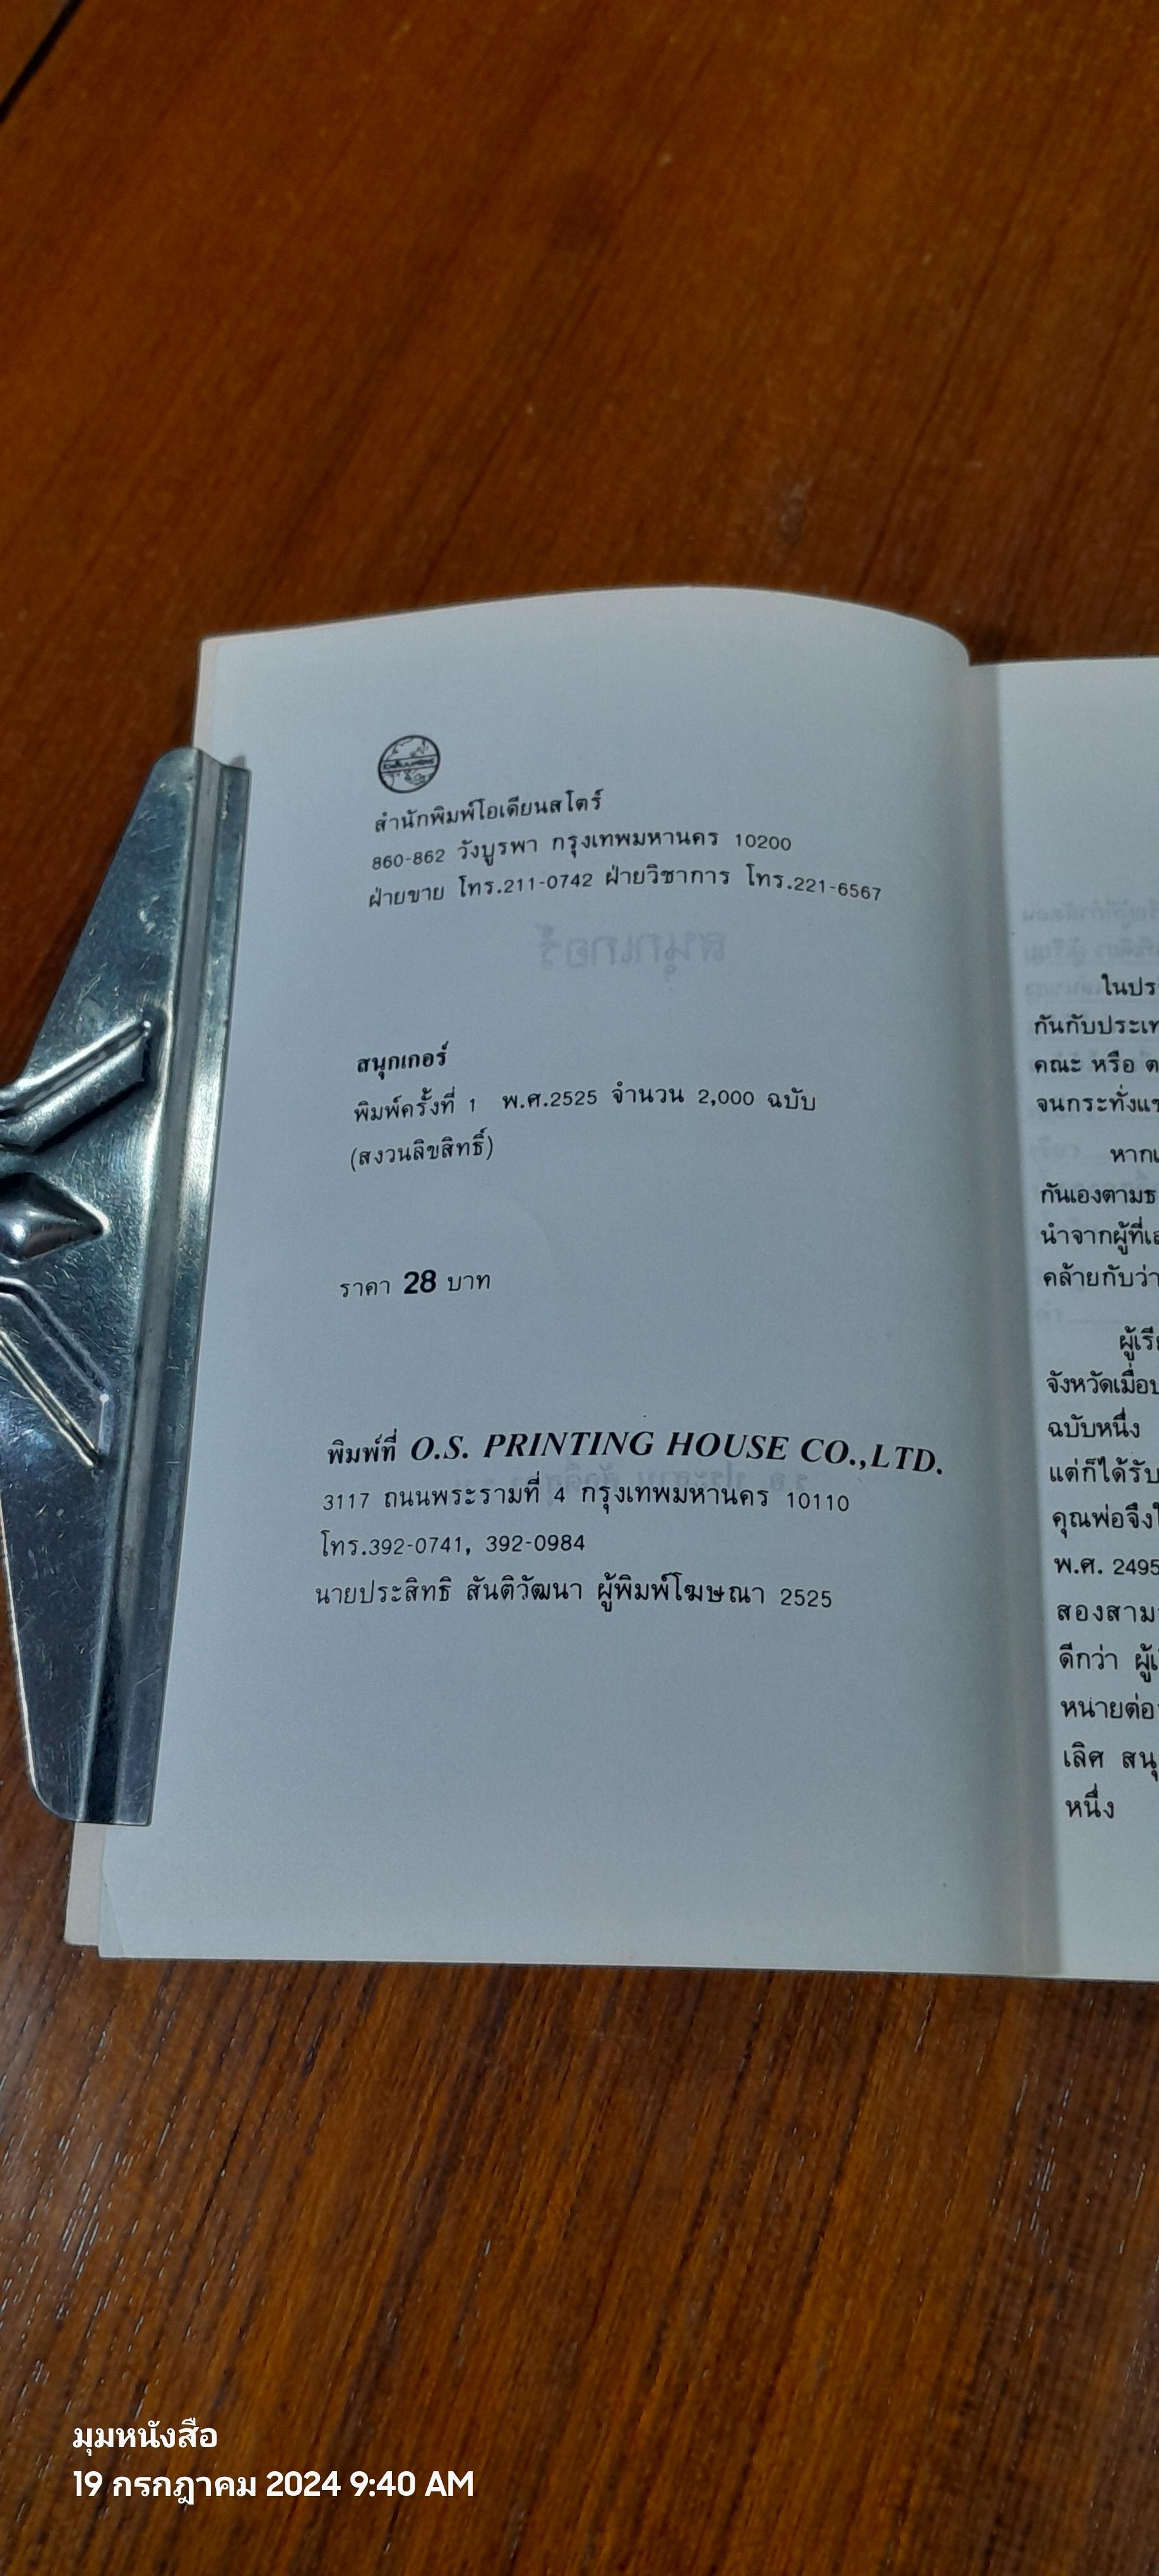 สำนักพิมพ์โอเดียนสโตร์
860-862 วังบูรพา กรุงเทพมหานคร 10200
ฝ่ายขาย โทร.211-0742 ฝ่ายวิชาการ โทร.221-6567
สนุกเกอร์
พิมพ์ครั้งที่ 1 พ.ศ.2525 จำนวน 2,000 ฉบับ
(สงวนลิขสิทธิ์)
ราคา 28 บาท
พิมพ์ที่ O.S. PRINTING HOUSE CO.,LTD.
3117 ถนนพระรามที่ 4 กรุงเทพมหานคร 10110
โทร.392-0741, 392-0984
นายประสิทธิ สันติวัฒนา ผู้พิมพ์โฆษณา 2525
ในประ
กันกับประเท
คณะ หรือ ต
จนกระทั่งแข
หาก
กันเองตามธ
นำจากผู้ที่เล
คล้ายกับว่า
ผู้เรีย
จังหวัดเมื่อ
ฉบับหนึ่ง
แต่ก็ได้รับ
คุณพ่อจึง
พ.ศ. 2495
สองสาม
ดีกว่า ผู้
หน่ายต่อ
เลิศ สนุ
หนึ่ง
มุมหนังสือ
19 กรกฎาคม 2024 9:40 AM